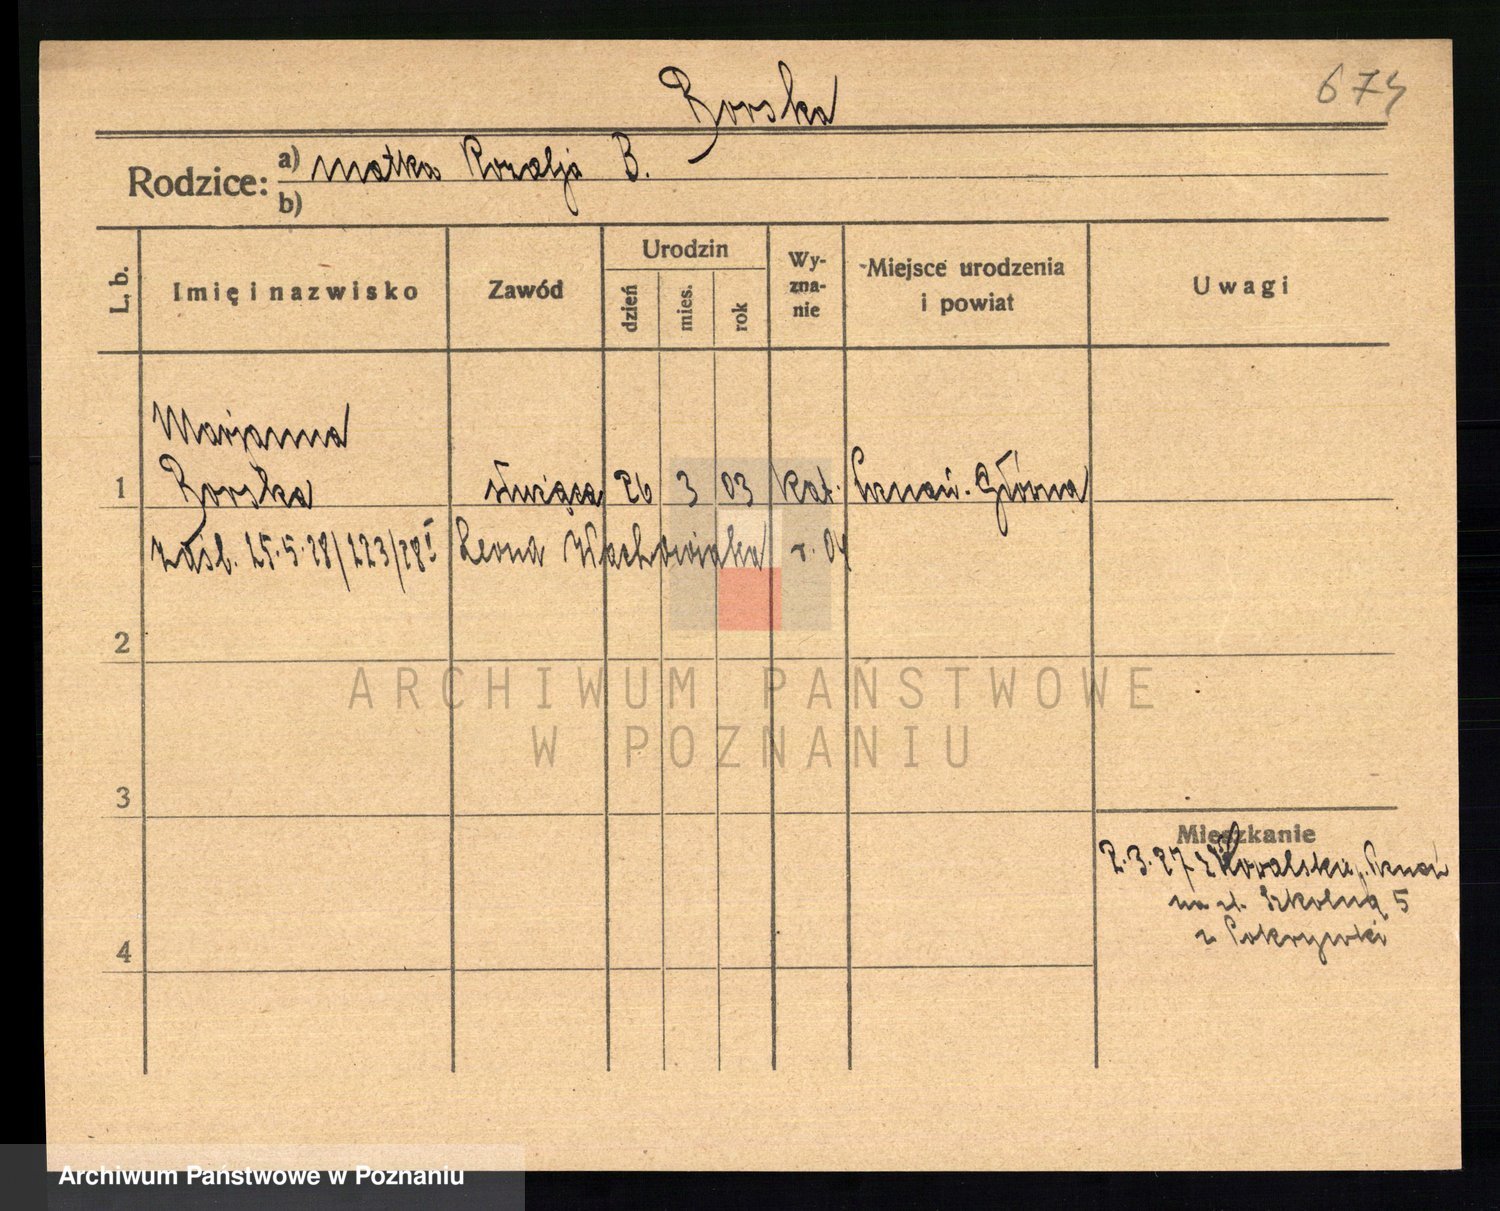 Borska
674
Rodzice: a) matka Rozalja B.
b)
L. b.
Imię i nazwisko
Zawód
Urodzin
dzień
mies.
rok
Wy-
zna-
nie
Miejsce urodzenia
i powiat
Uwagi
Marjanna
1 Borska służąca 26 3 03 kat. Poznań. Główna
zaśb. 25.5.28/223/28 I Leona Wachowiaka r. 04
2
3
4
Mieszkanie
2.3.27 z Kowalsku, p. Poznań
na ul. Szkolną 5
z Pokrzywki
ARCHIWUM PAŃSTWOWE
W POZNANIU
Archiwum Państwowe w Poznaniu